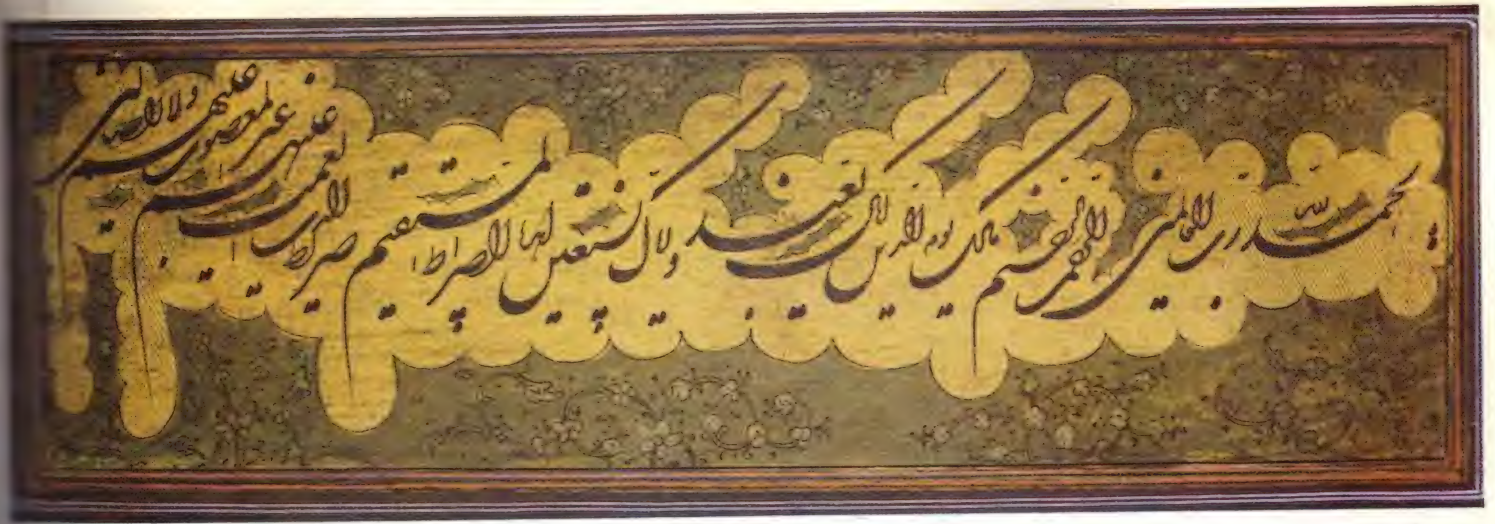 الحمد لله رب العالمین الرحمن الرحیم مالک یوم الدین ایاک نعبد و ایاک نستعین اهدنا الصراط المستقیم صراط الذین انعمت علیهم غیر المغضوب علیهم ولا الضالین